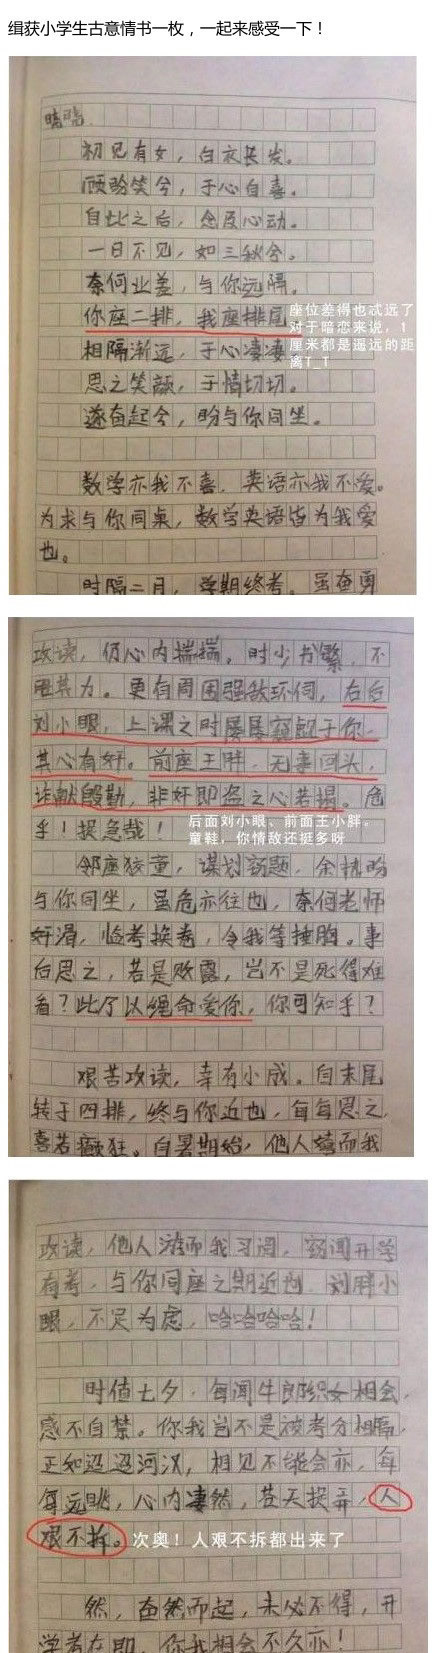 缉获小学生古意情书一枚，一起来感受一下！
晴晴
初见有女，白衣长发。
顾盼笑兮，于心自喜。
自此之后，念及心动。
一日不见，如三秋兮。
奈何业差，与你远隔。
你座二排，我座排尾
座位差得也忒远了
对于暗恋来说，1
厘米都是遥远的距
离T_T
相隔渐远，于心凄凄
思之笑颜，于情切切。
遂奋起兮，盼与你同坐。
数学亦我不喜，英语亦我不爱。
为求与你同桌，数学英语皆为我爱
也。
时隔二月，学期终考。虽奋勇
攻读，仍心内揣揣，时少书繁，不
胜其力。更有周围强敌环伺，右后
刘小眼，上课之时屡屡窥觑于你，
其心有奸。前座王胖，无事回头，
诈献殷勤，非奸即盗之心若揭。危
乎！捉急哉！
后面刘小眼、前面王小胖。
童鞋，你情敌还挺多呀
邻座狡童，谋划窃题，余
与你同坐，虽危亦往也，奈何老师
奸滑，临考换卷，令我等捶胸。事
后思之，若是败露，岂不是死得难
看？此乃以绳命爱你，你可知乎？
艰苦攻读，幸有小成。自末尾
转于四排，终与你近也，每每思之，
喜若癫狂。自暑期始，他人嬉而我
攻读，他人游而我习阅，窃闻开学
有考，与你同座之期近也，刘胖小
眼，不足为虑，哈哈哈哈！
时值七夕，每闻牛郎织女相会，
感不自禁。你我岂不是被考分相隔，
正如迢迢河汉，相见不能会亦，每
每远眺，心内凄然，苍天捉弄，人
艰不拆。
次奥！人艰不拆都出来了
然，奋然而起，未必不得，开
学考在即，你我相会不久亦！